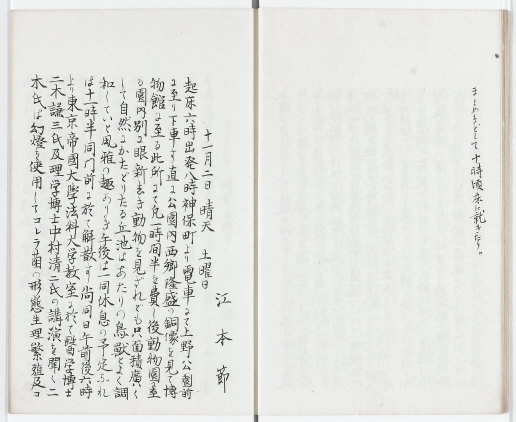 まとめおとして十時頃床に就きたり。
十一月二日 晴天 土曜日
江本節
起床六時出発八時神保町より電車にて上野公園前
に至り下車す直に公園内西郷隆盛の銅像を見て博
物館に至る此所にて凡一時間半を費し後動物園に至
る園内別に眼新しき動物を見ざれども只面積廣く
して自然にかたどりたる丘池はあたりの鳥獣とよく調
和していと風雅の趣のありき午後は一同休息の予定なれ
ば十一時半同門前に於て解散す尚同日午前後六時
より東京帝國大學法科大学教室に於て醫学博士
二木謙三氏及理学博士中村清二氏の講演を聞く二
木氏は幻燈を使用してコレラ菌の形態生理繁殖及コ